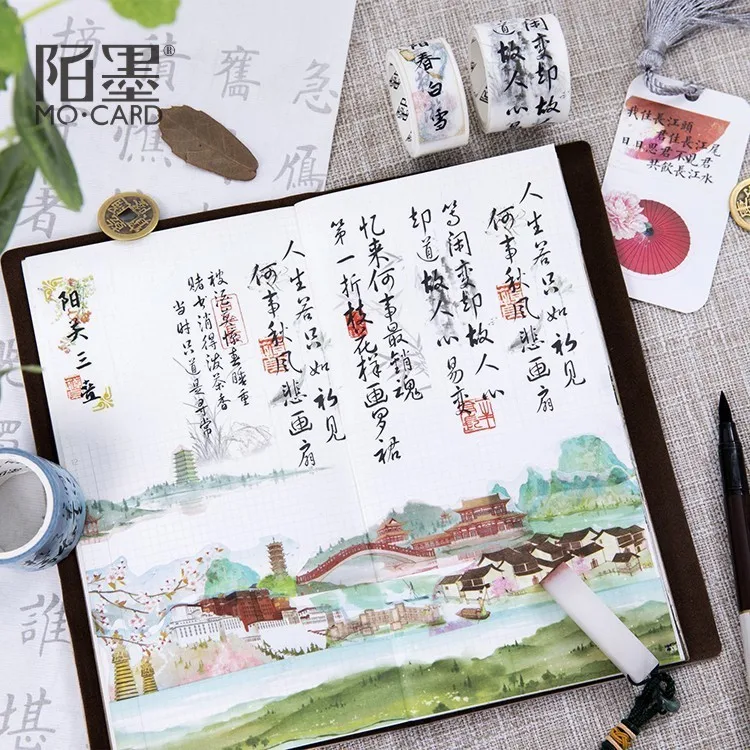 陌墨®
MO·CARD
阳春白雪
等闲变却故
故人心易
我住長江頭
君住長江尾
日日思君不见君
共飲長江水
人生若只如初见
何事秋风悲画扇
等闲变却故人心
却道故人心易变
忆来何事最销魂
第一折枝花样画罗裙
人生若只如初见
何事秋风悲画扇
被酒莫惊春睡重
赌书消得泼茶香
当时只道是寻常
阳关三叠
急
誰
堪